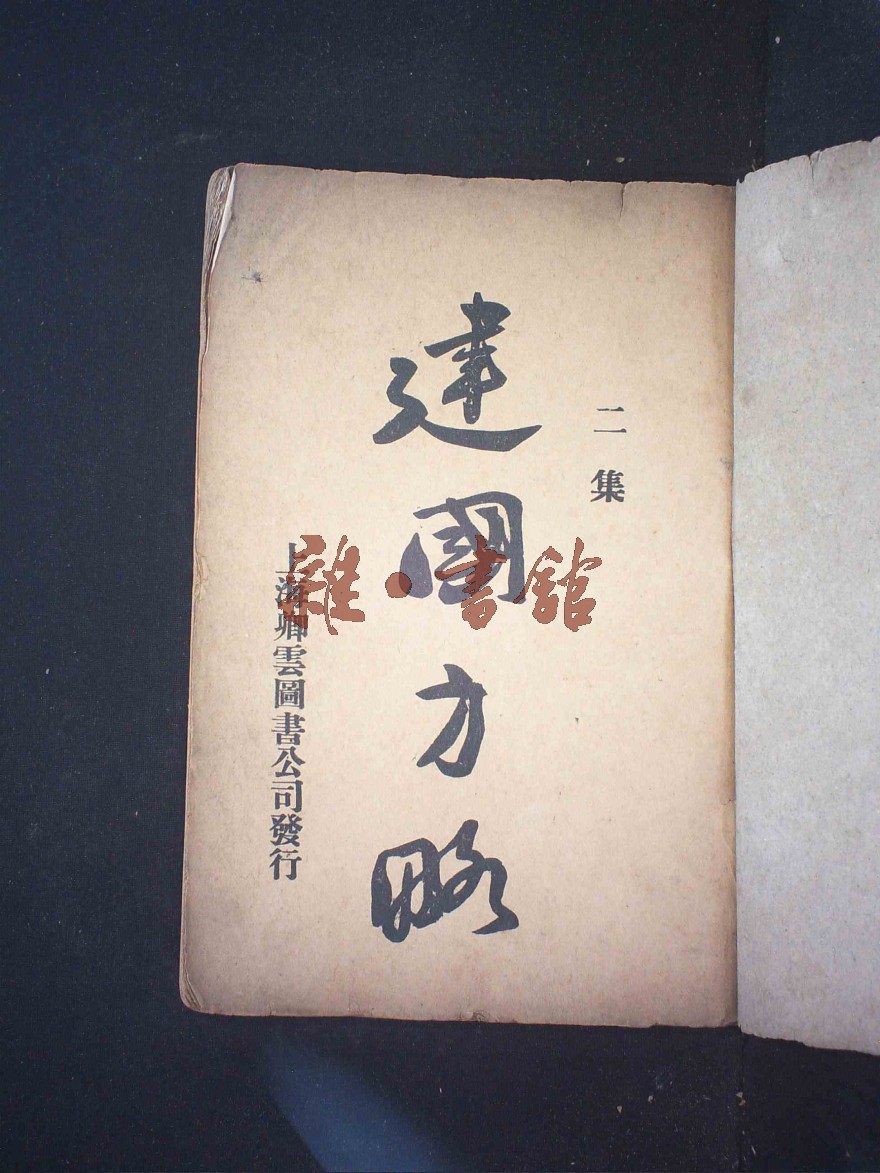 二集
建國方略
上海卿雲圖書公司發行
雜·書館